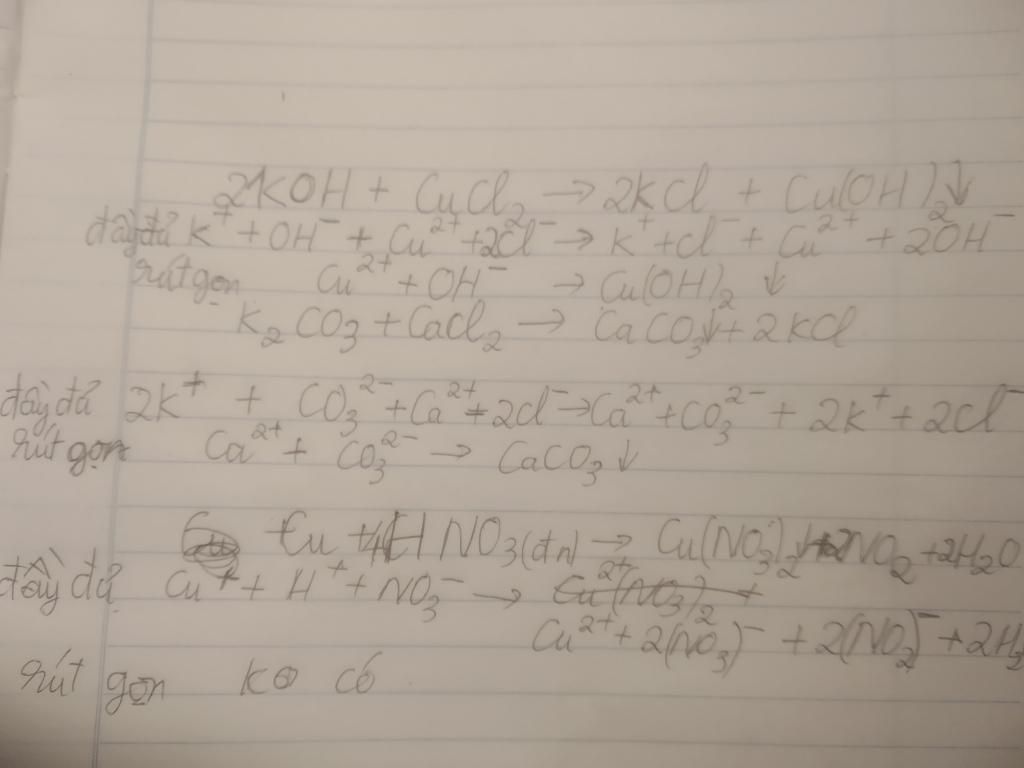 2KOH + CuCl₂ → 2KCl + Cu(OH)₂↓
đầy đủ K⁺ + OH⁻ + Cu²⁺ + 2Cl⁻ → K⁺ + Cl⁻ + Cu²⁺ + 2OH⁻
rút gọn Cu²⁺ + OH⁻ → Cu(OH)₂ ↓
K₂CO₃ + CaCl₂ → CaCO₃↓ + 2KCl
đầy đủ 2K⁺ + CO₃²⁻ + Ca²⁺ + 2Cl⁻ → Ca²⁺ + CO₃²⁻ + 2K⁺ + 2Cl⁻
rút gọn Ca²⁺ + CO₃²⁻ → CaCO₃↓
Cu + 4HNO₃(đn) → Cu(NO₃)₂ + 2NO₂ + 2H₂O
đầy đủ Cu⁺ + H⁺ + NO₃⁻ →
Cu²⁺ + 2(NO₃)⁻ + 2(NO₂)⁻ + 2H₂
rút gọn ko có